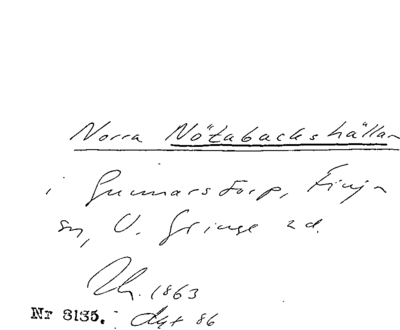 Norra Nötabackshällan
i Gunnarstorp, Finja
sn, V. Göinge hd.
Th. 1863
Nr 8135. Dyt 86